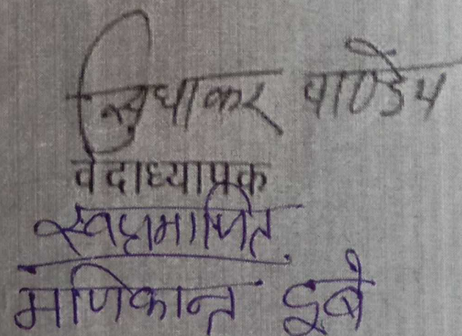 सुधाकर पाण्डेय
वेदाध्यापक
स्वप्रमाणित
मणिकान्त दुबे